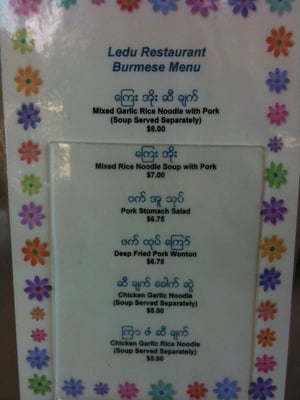 Ledu Restaurant
Burmese Menu
ကြေး အိုး ဆီ ချက်
Mixed Garlic Rice Noodle with Pork
(Soup Served Separately)
$8.00
ကြေး အိုး
Mixed Rice Noodle Soup with Pork
$7.00
ဝက် အူ သုပ်
Pork Stomach Salad
$6.75
ဖက် ထုပ် ကြော်
Deep Fried Pork Wonton
$6.75
ဆီ ချက် ခေါက် ဆွဲ
Chicken Garlic Noodle
(Soup Served Separately)
$5.50
ကြာ ဇံ ဆီ ချက်
Chicken Garlic Rice Noodle
(Soup Served Separately)
$5.50